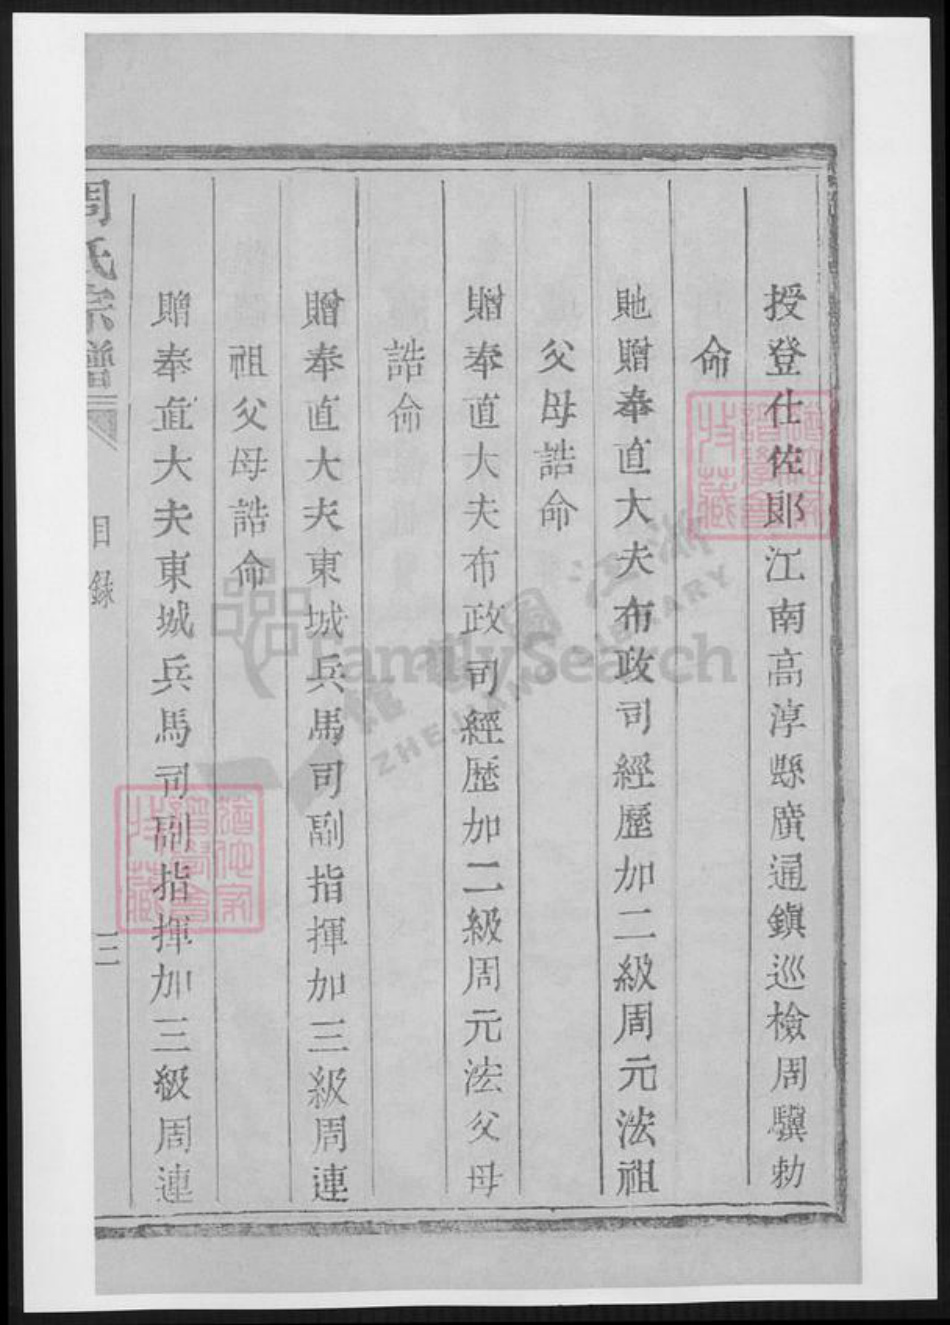 授登仕佐郎江南高淳縣廣通鎮巡檢周驥勅
命
貤贈奉直大夫布政司經歷加二級周元法祖
父母誥命
贈奉直大夫布政司經歷加二級周元法父母
誥命
贈奉直大夫東城兵馬司副指揮加三級周連
祖父母誥命
贈奉直大夫東城兵馬司副指揮加三級周連
周氏宗譜
目錄
三
FamilySearch
浙江圖書館
ZHEJIANG LIBRARY